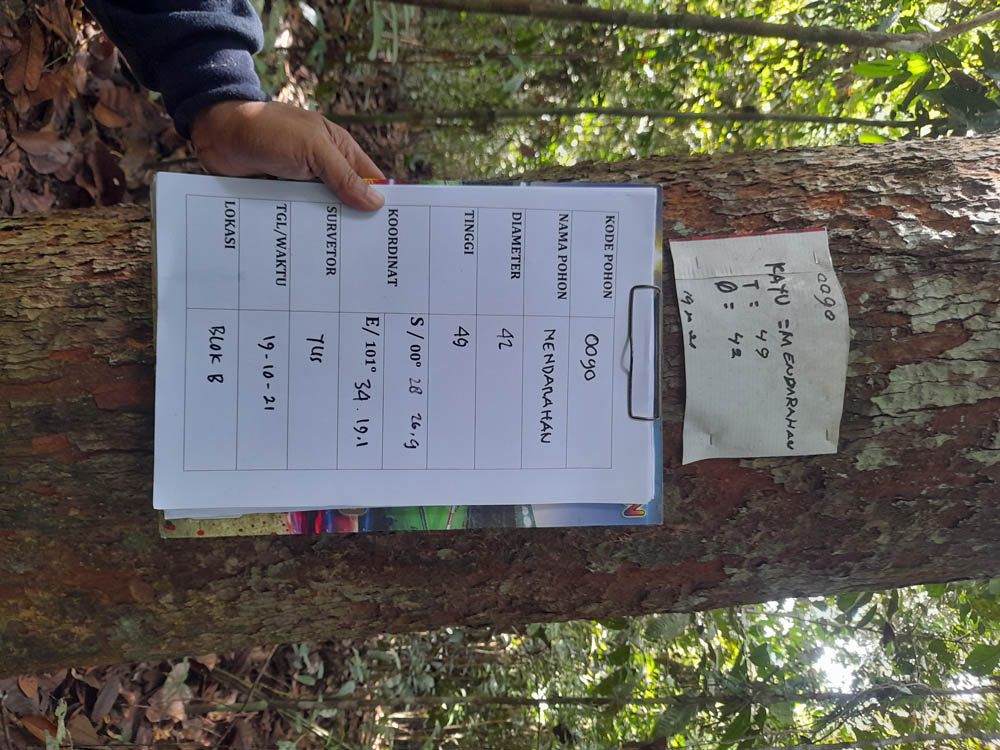 0090
KAYU = MENDARAHAN
T = 49
Ø = 42
19 10 21
N
KODE POHON 0090
NAMA POHON MENDARAHAN
DIAMETER 42
TINGGI 49
KOORDINAT S / 00° 28 26,9
E/ 101° 34.19.1
SURVETOR YUS
TGL/WAKTU 19-10-21
LOKASI BLOK B